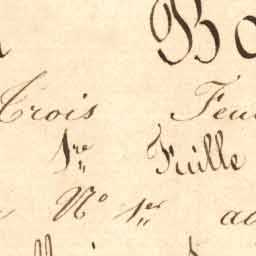 Bo
Trois Feui
1re Fuille
No 1er au